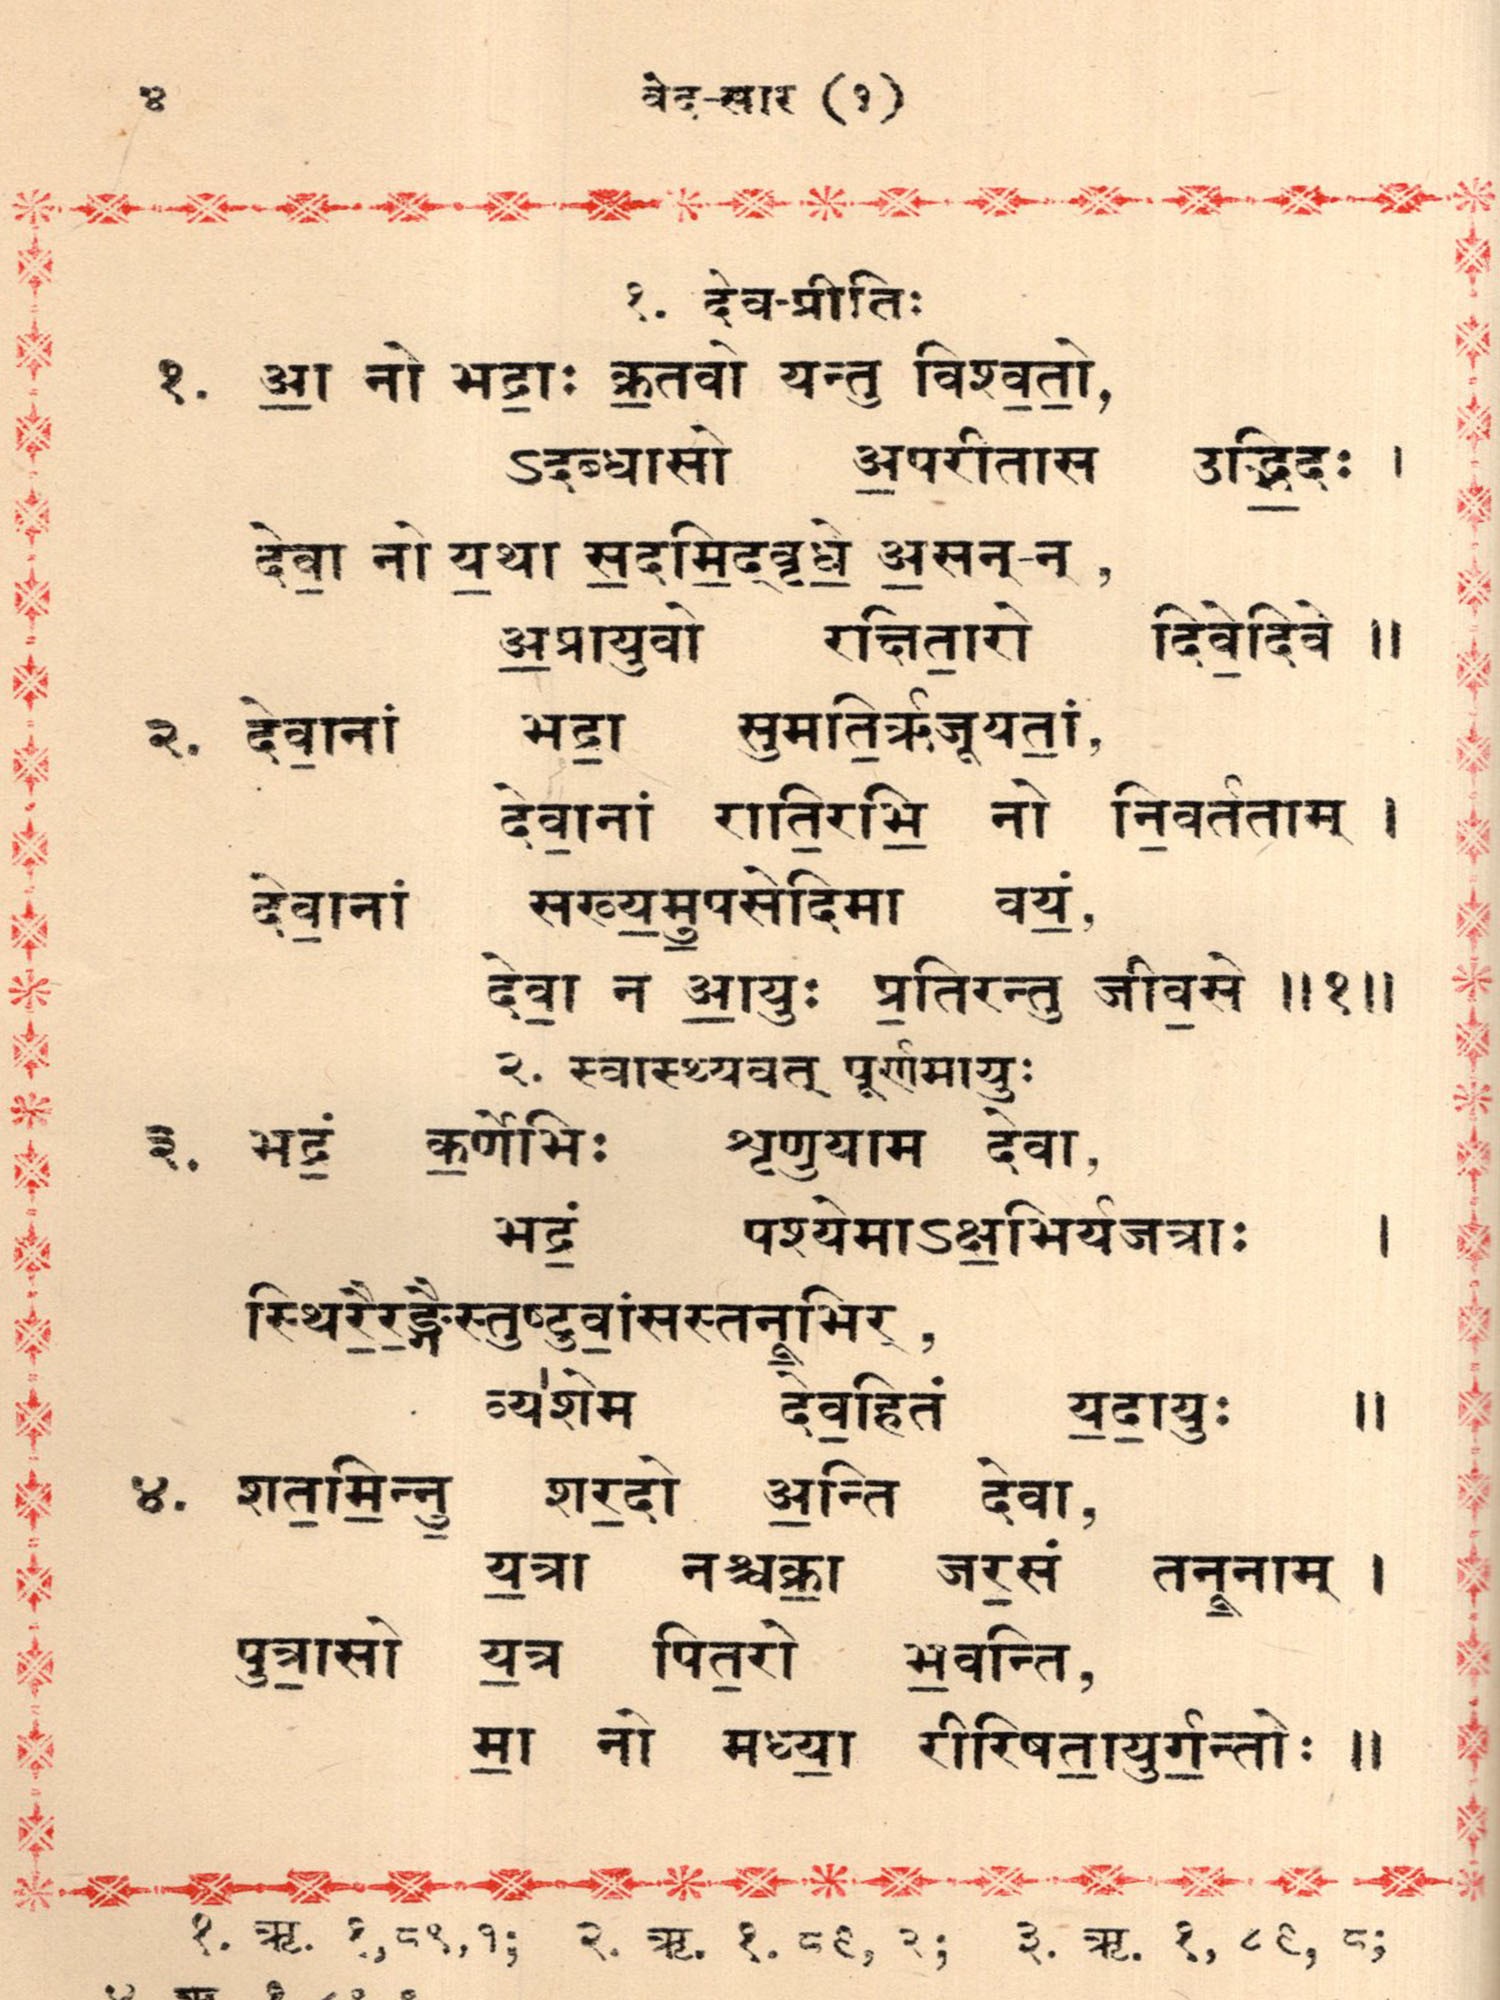 ४ वेद-सार (१)
१. देव-प्रीतिः
१. आ॒ नो भद्रा॒ः क्र॒तवो यन्तु विश्व॒तो॒,
ऽदब्धासो अ॒परीतास उद्भि॒दः ।
देवा॒ नो य॒था स॒दमि॒द्वृधे॒ अ॒सन्-न्,
अ॒प्रायुवो रक्षिता॒रो दिवे॒दिवे ॥
२. देवा॒नां भद्रा॒ सुमति॒र्ऋजूयतां॒,
देवा॒नां राति॒रभि॒ नो नि॒वर्तताम् ।
देवा॒नां सख्य॒मु॒पसेदिमा वयं॒,
देवा॒ न आ॒युः प्र॒तिरन्तु जीव॒से ॥१॥
२. स्वास्थ्यवत् पूर्णमायुः
३. भद्रं॒ क॒र्णेभिः शृणुयाम देवा,
भद्रं॒ पश्येमाऽक्ष॒भिर्यजत्राः ।
स्थिरै॒र॒ङ्गैस्तुष्टुवां॒सस्तनू॒भिर्,
व्य॑शेम देव॒हितं य॒दा॒युः ॥
४. शत॒मि॒न्नु॒ शर॒दो अ॒न्ति देवा,
य॒त्रा नश्चक्रा॒ जर॒सं तनू॒नाम् ।
पुत्रा॒सो य॒त्र पित॒रो भ॒वन्ति,
मा॒ नो मध्या॒ रीरिषता॒युर्ग॒न्तोः ॥
१. ऋ. १,८९,१; २. ऋ. १. ८९, २; ३. ऋ. १, ८९, ८;